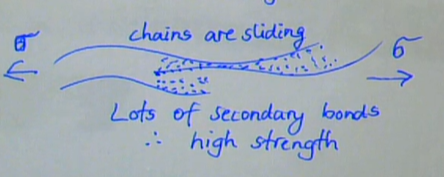 chains are sliding
σ σ
Lots of secondary bonds
∴ high strength